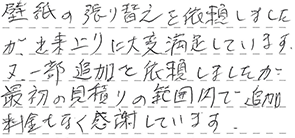 壁紙の張り替えを依頼しました
が出来上りに大変満足しています。
又一部追加で依頼しましたが
最初の見積りの範囲内で追加
料金もなく感謝しています